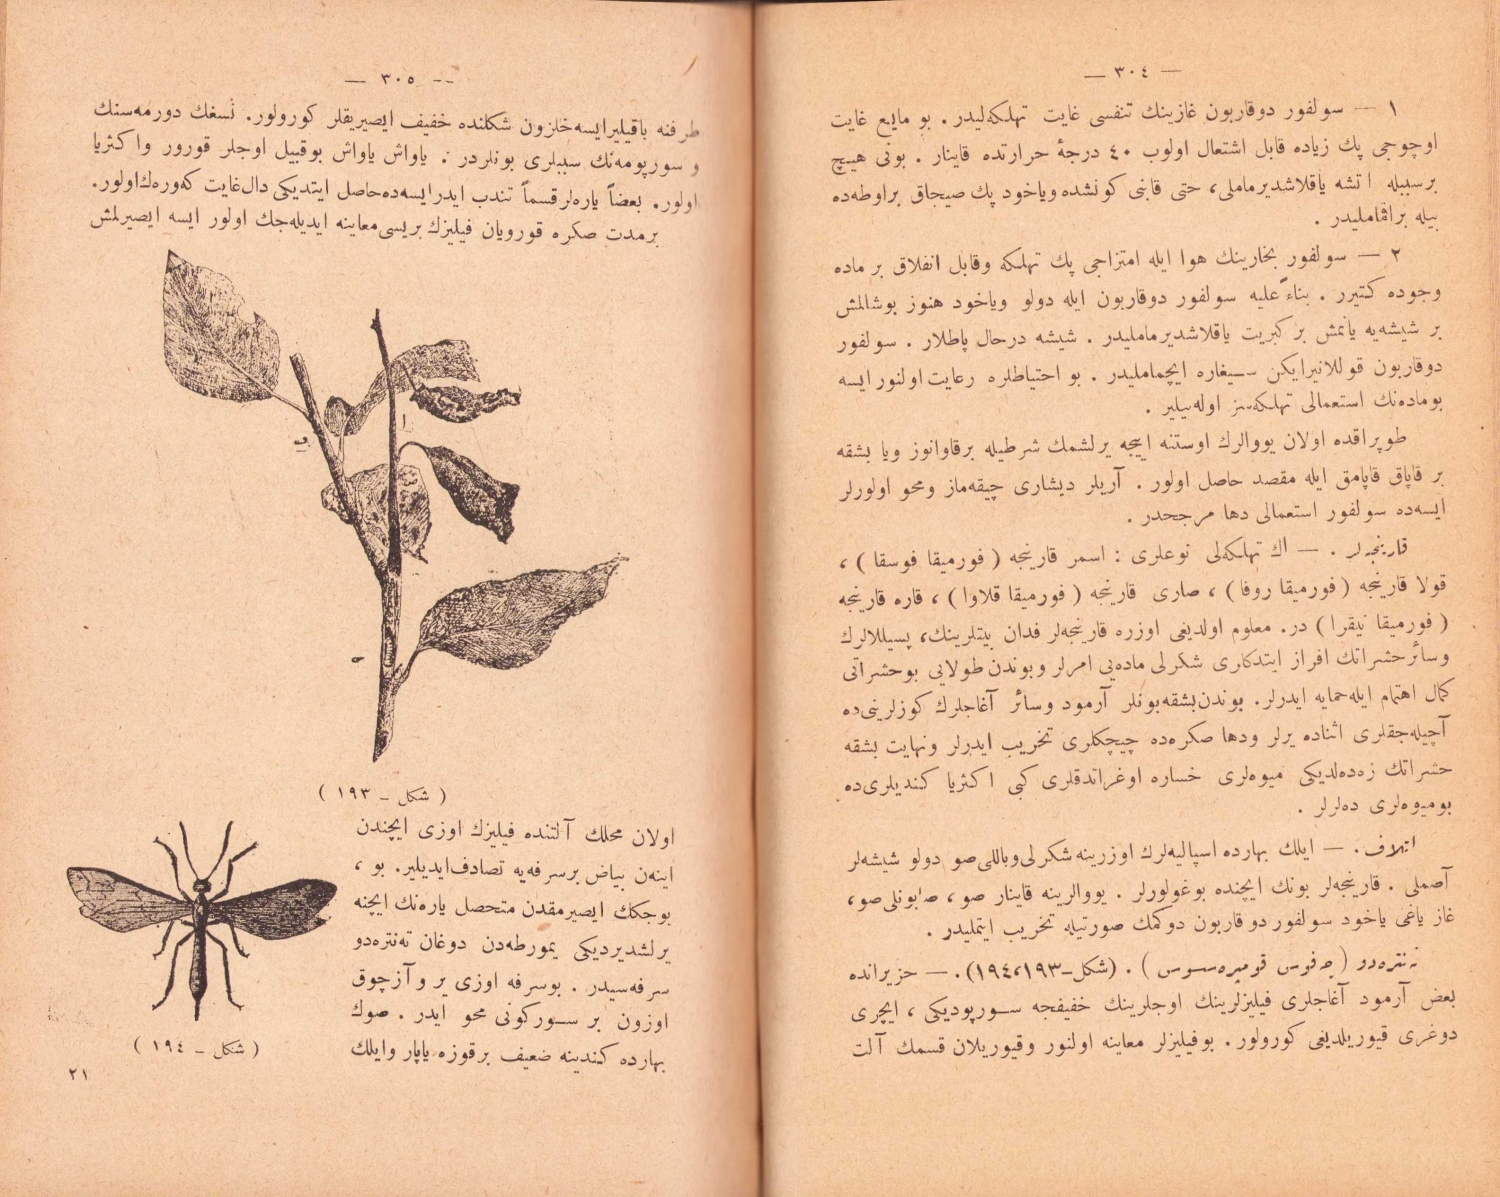 — ٣٠٤ —
١ — سولفور دوقاربون غازينك تنفسى غايت تهلكه‌ليدر. بو مايع غايت
اوچوجى پك زياده قابل اشتعال اولوب ٤٠ درجۀ حرارتده قاينار. بونى هيچ
برسببله اتشه ياقلاشديرماملى، حتى قانى كونشده وياخود پك صيجاق براوطه‌ده
بيله براقماملیدر.
٢ — سولفور بخارينك هوا ايله امتزاجى پك تهلكه وقابل انفلاق بر ماده
وجوده كتيرر. بناءً عليه سولفور دوقاربون ايله دولو وياخود هنوز بوشالمش
بر شيشه‌يه يانمش بر كبريت ياقلاشديرمامليدر. شيشه درحال پاطلار. سولفور
دوقاربون قوللانيرايكن سيغاره ايچمامليدر. بو احتياطلره رعايت اولنور ايسه
بوماده‌نك استعمالى تهلكه‌سز اوله‌بيلير.
طوپراقده اولان يووالرك اوستنه اييجه يرلشمك شرطيله برقاوانوز ويا بشقه
بر قاپاق قاپامق ايله مقصد حاصل اولور. آريلر ديشارى چيقه‌ماز ومحو اولورلر
ايسه‌ده سولفور استعمالى دها مرجحدر.
قارينجه‌لر. — اك تهلكه‌لى نوعلرى: اسمر قارينجه (فورميقا فوسقا)،
قولا قارينجه (فورميقا روفا)، صارى قارينجه (فورميقا قلاوا)، قاره قارينجه
(فورميقا نيقرا) در. معلوم اولديغى اوزره قارنجه‌لر فدان بيتلرينك، پسيللالرك
وسائر حشراتك افراز ايتدكلرى شكرلى ماده‌يى امرلر وبوندن طولايى بوحشراتى
كمال اهتمام ايله حمايه ايدرلر. بوندن بشقه بونلر آرمود وسائر آغاجلرك كوزلرينى‌ده
آچيله‌جقلرى اثناده يرلر ودها صكره‌ده چيچكلرى تخريب ايدرلر ونهايت بشقه
حشراتك زه‌ده‌لديكى ميوه‌لرى خساره اوغراتدقلرى كبى اكثريا كنديلرى‌ده
بوميوه‌لرى ده‌لرلر.
اتلاف. — ايلك بهارده اسپاليه‌لرك اوزرينه شكرلى وباللى صو دولو شيشه‌لر
آصملى. قارنجه‌لر بونك ايچنده بوغولورلر. يووالرينه قاينار صو، صابونلى صو،
غاز ياغى ياخود سولفور دوقاربون دوكمك صورتيله تخريب ايتمليدر.
(شكل-١٩٣،١٩٤). — حزيرانده
بعض آرمود آغاجلرى فيليزلرينك اوجلرينك خفيفجه سورپوديكى، ايچرى
دوغرى قيوريلديغى كورولور. بوفيليزلر معاينه اولنور وقيوريلان قسمك آلت
— ٣٠٥ —
طرفنه باقيلير ايسه حلزون شكلنده خفيف ايصيريقلر كورولور. نسغك دورمه‌سنك
و سورپومه‌نك سببلرى بونلردر. ياواش ياواش بوقبيل اوجلر قورور واكثريا
اولور. بعضاً ياره‌لر قسماً تندب ايدر ايسه‌ده حاصل ايتديكى دال غايت كه‌وره‌ك اولور.
برمدت صكره قورويان فيليزك بريسى معاينه ايديله‌جك اولور ايسه ايصيرلمش
(شكل - ١٩٣)
اولان محلك آلتنده فيليزك اوزى ايچندن
اينه‌ن بياض برسرفه‌يه تصادف ايديلير. بو،
بوجكك ايصيرمقدن متحصل ياره‌نك ايچنه
يرلشديرديكى يمورطه‌دن دوغان ته‌نتره‌دو
سرفه‌سيدر. بوسرفه اوزى ير و آز چوق
اوزون بر سوركونى محو ايدر. صوك
بهارده كندينه ضعيف برقوزه ياپار وايلك
(شكل - ١٩٤)
٢١